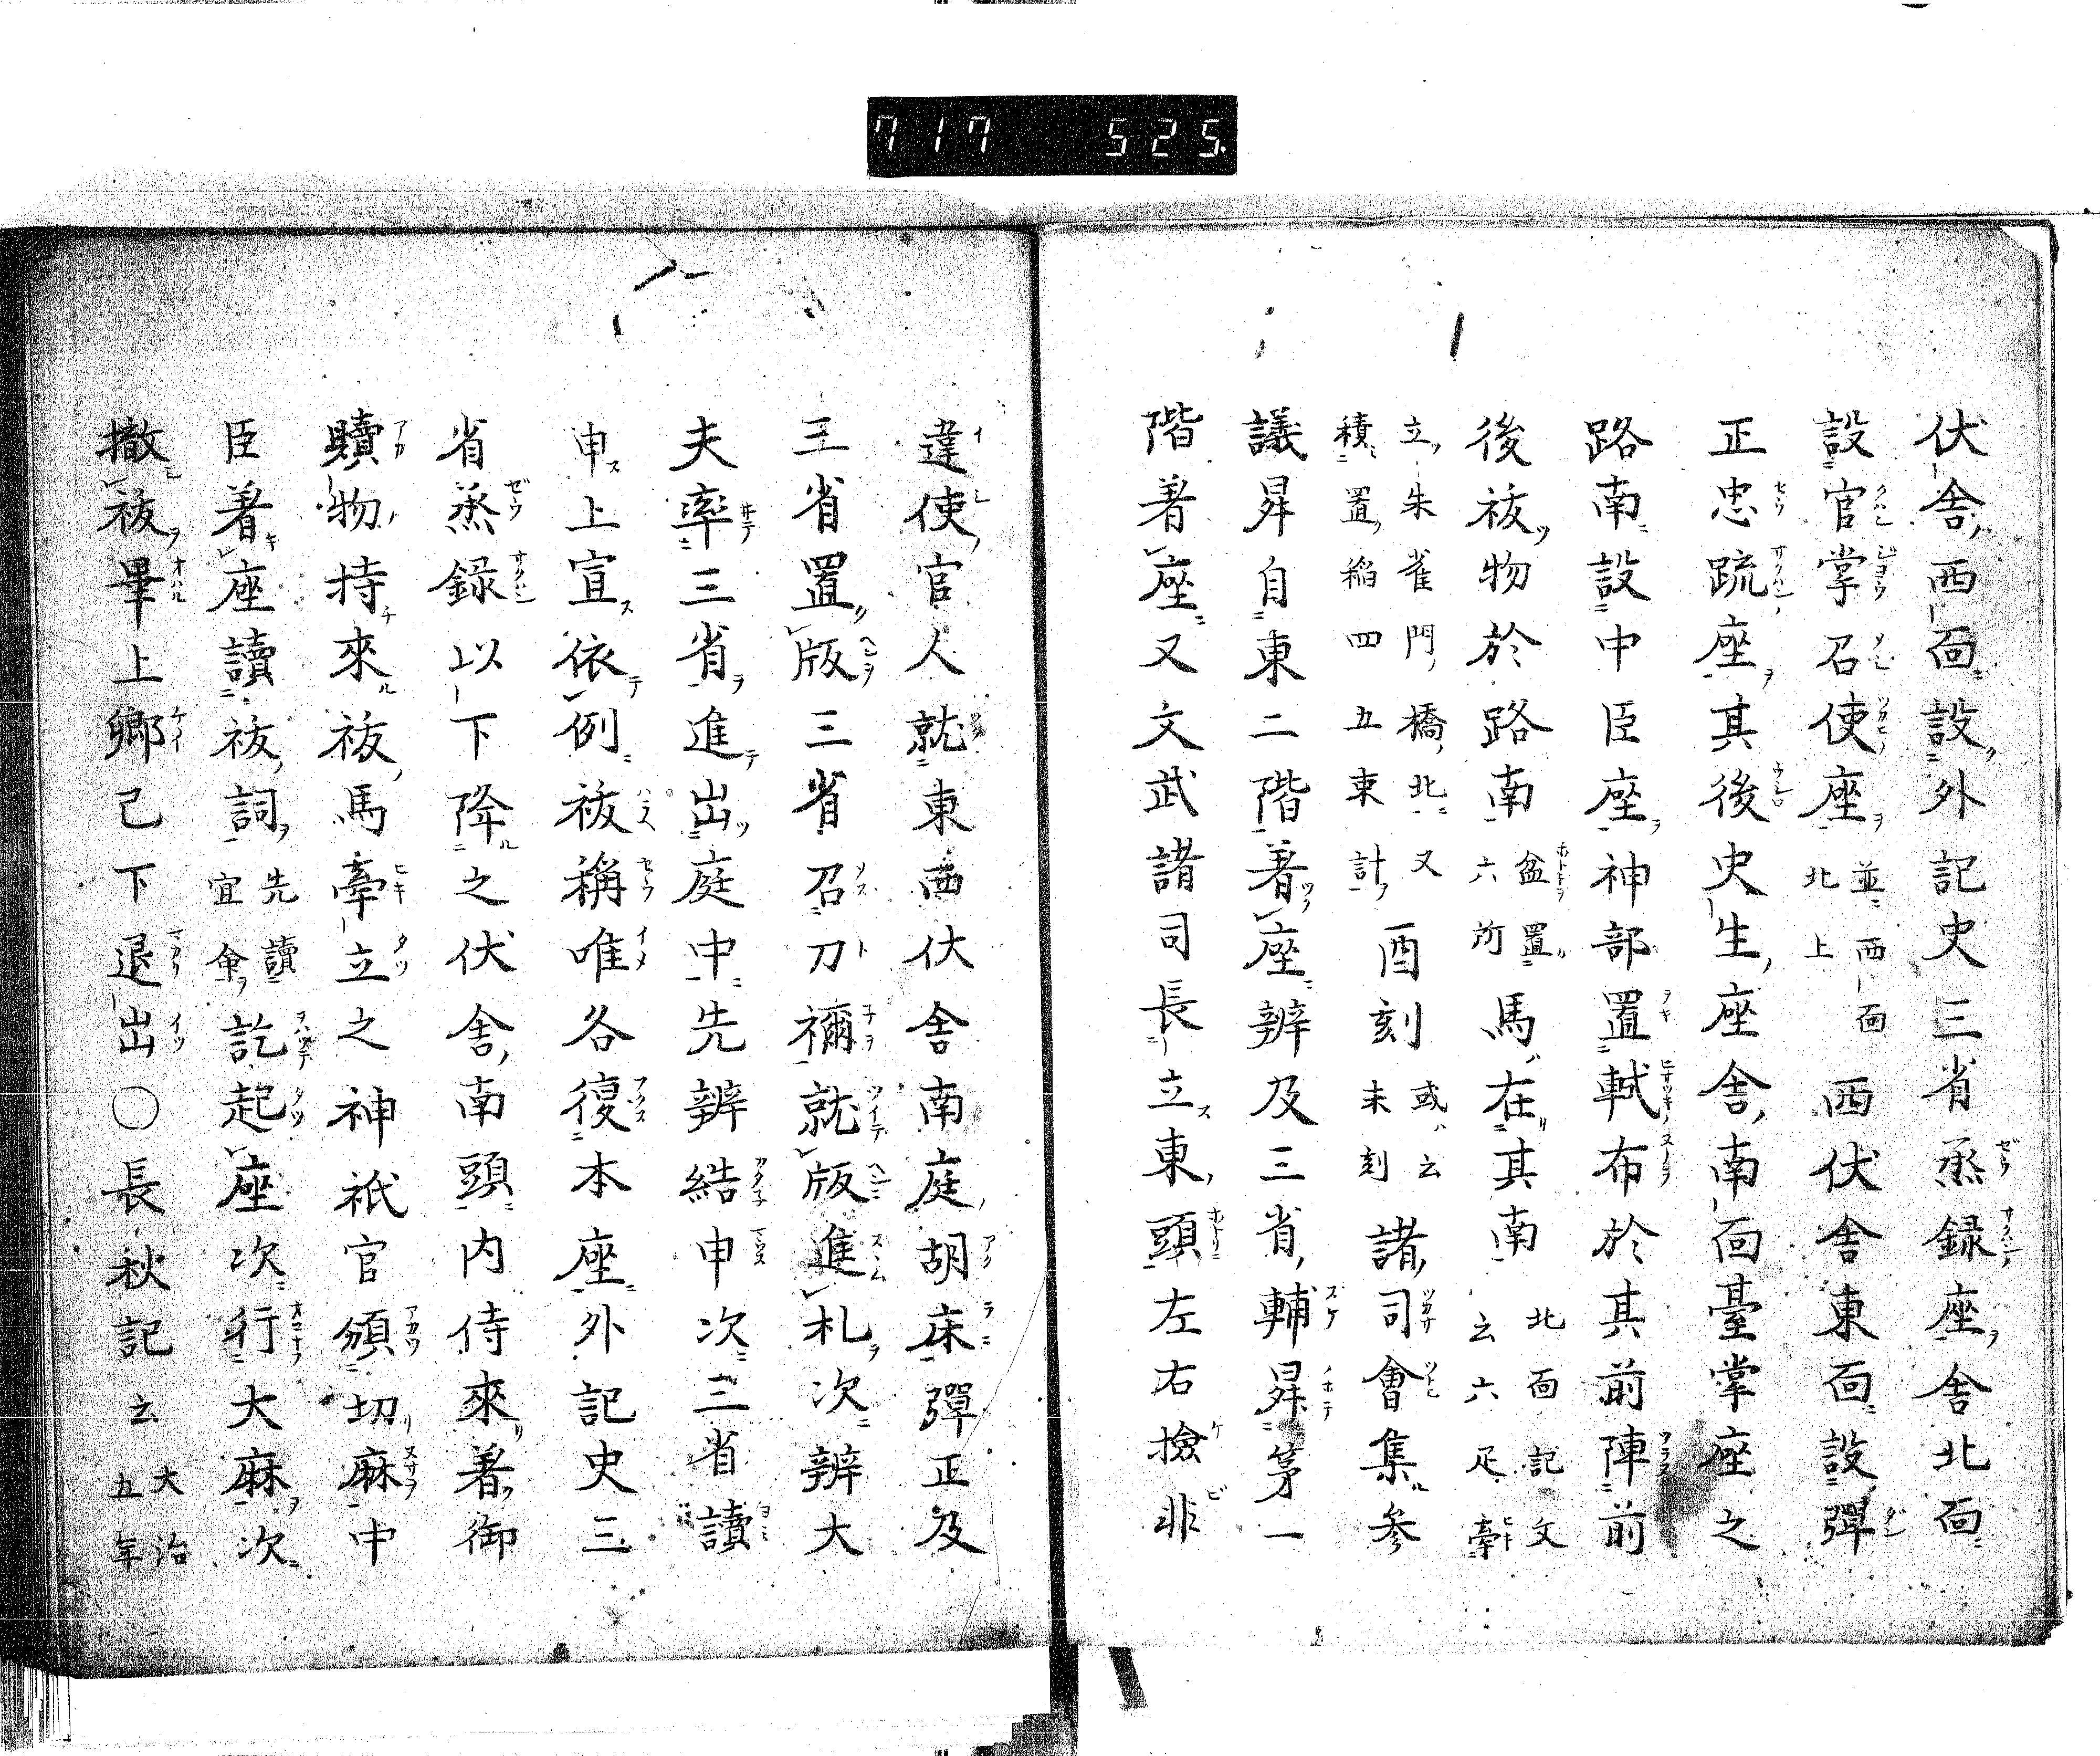 717 525
伏舎西面設外記史三省烝録座舎北面
設官掌召使座並西面北上西伏舎東面設彈
正忠疏座其後史生座舎南面臺掌座之
路南設中臣座神部置軾布於其前陣前
後祓物於路南盆置六所馬在其南北面記文云六疋牽
立朱雀門橋北又積置稲四五束計酉刻或云未刻諸司會集参
議昇自東二階著座辨及三省輔昇第一
階著座又文武諸司長立東頭左右撿非
違使官人就東西伏舎南庭胡床彈正及
王省置版三省召刀禰就版進札次辨大
夫率三省進出庭中先辨結申次三省讀
申上宣依例祓稱唯各復本座外記史三
省烝録以下降之伏舎南頭内侍來著御
贖物持來祓馬牽立之神祇官頒切麻中
臣著座讀祓詞先讀宣命訖起座次行大麻次
撤祓畢上卿已下退出○長秋記云大治五年